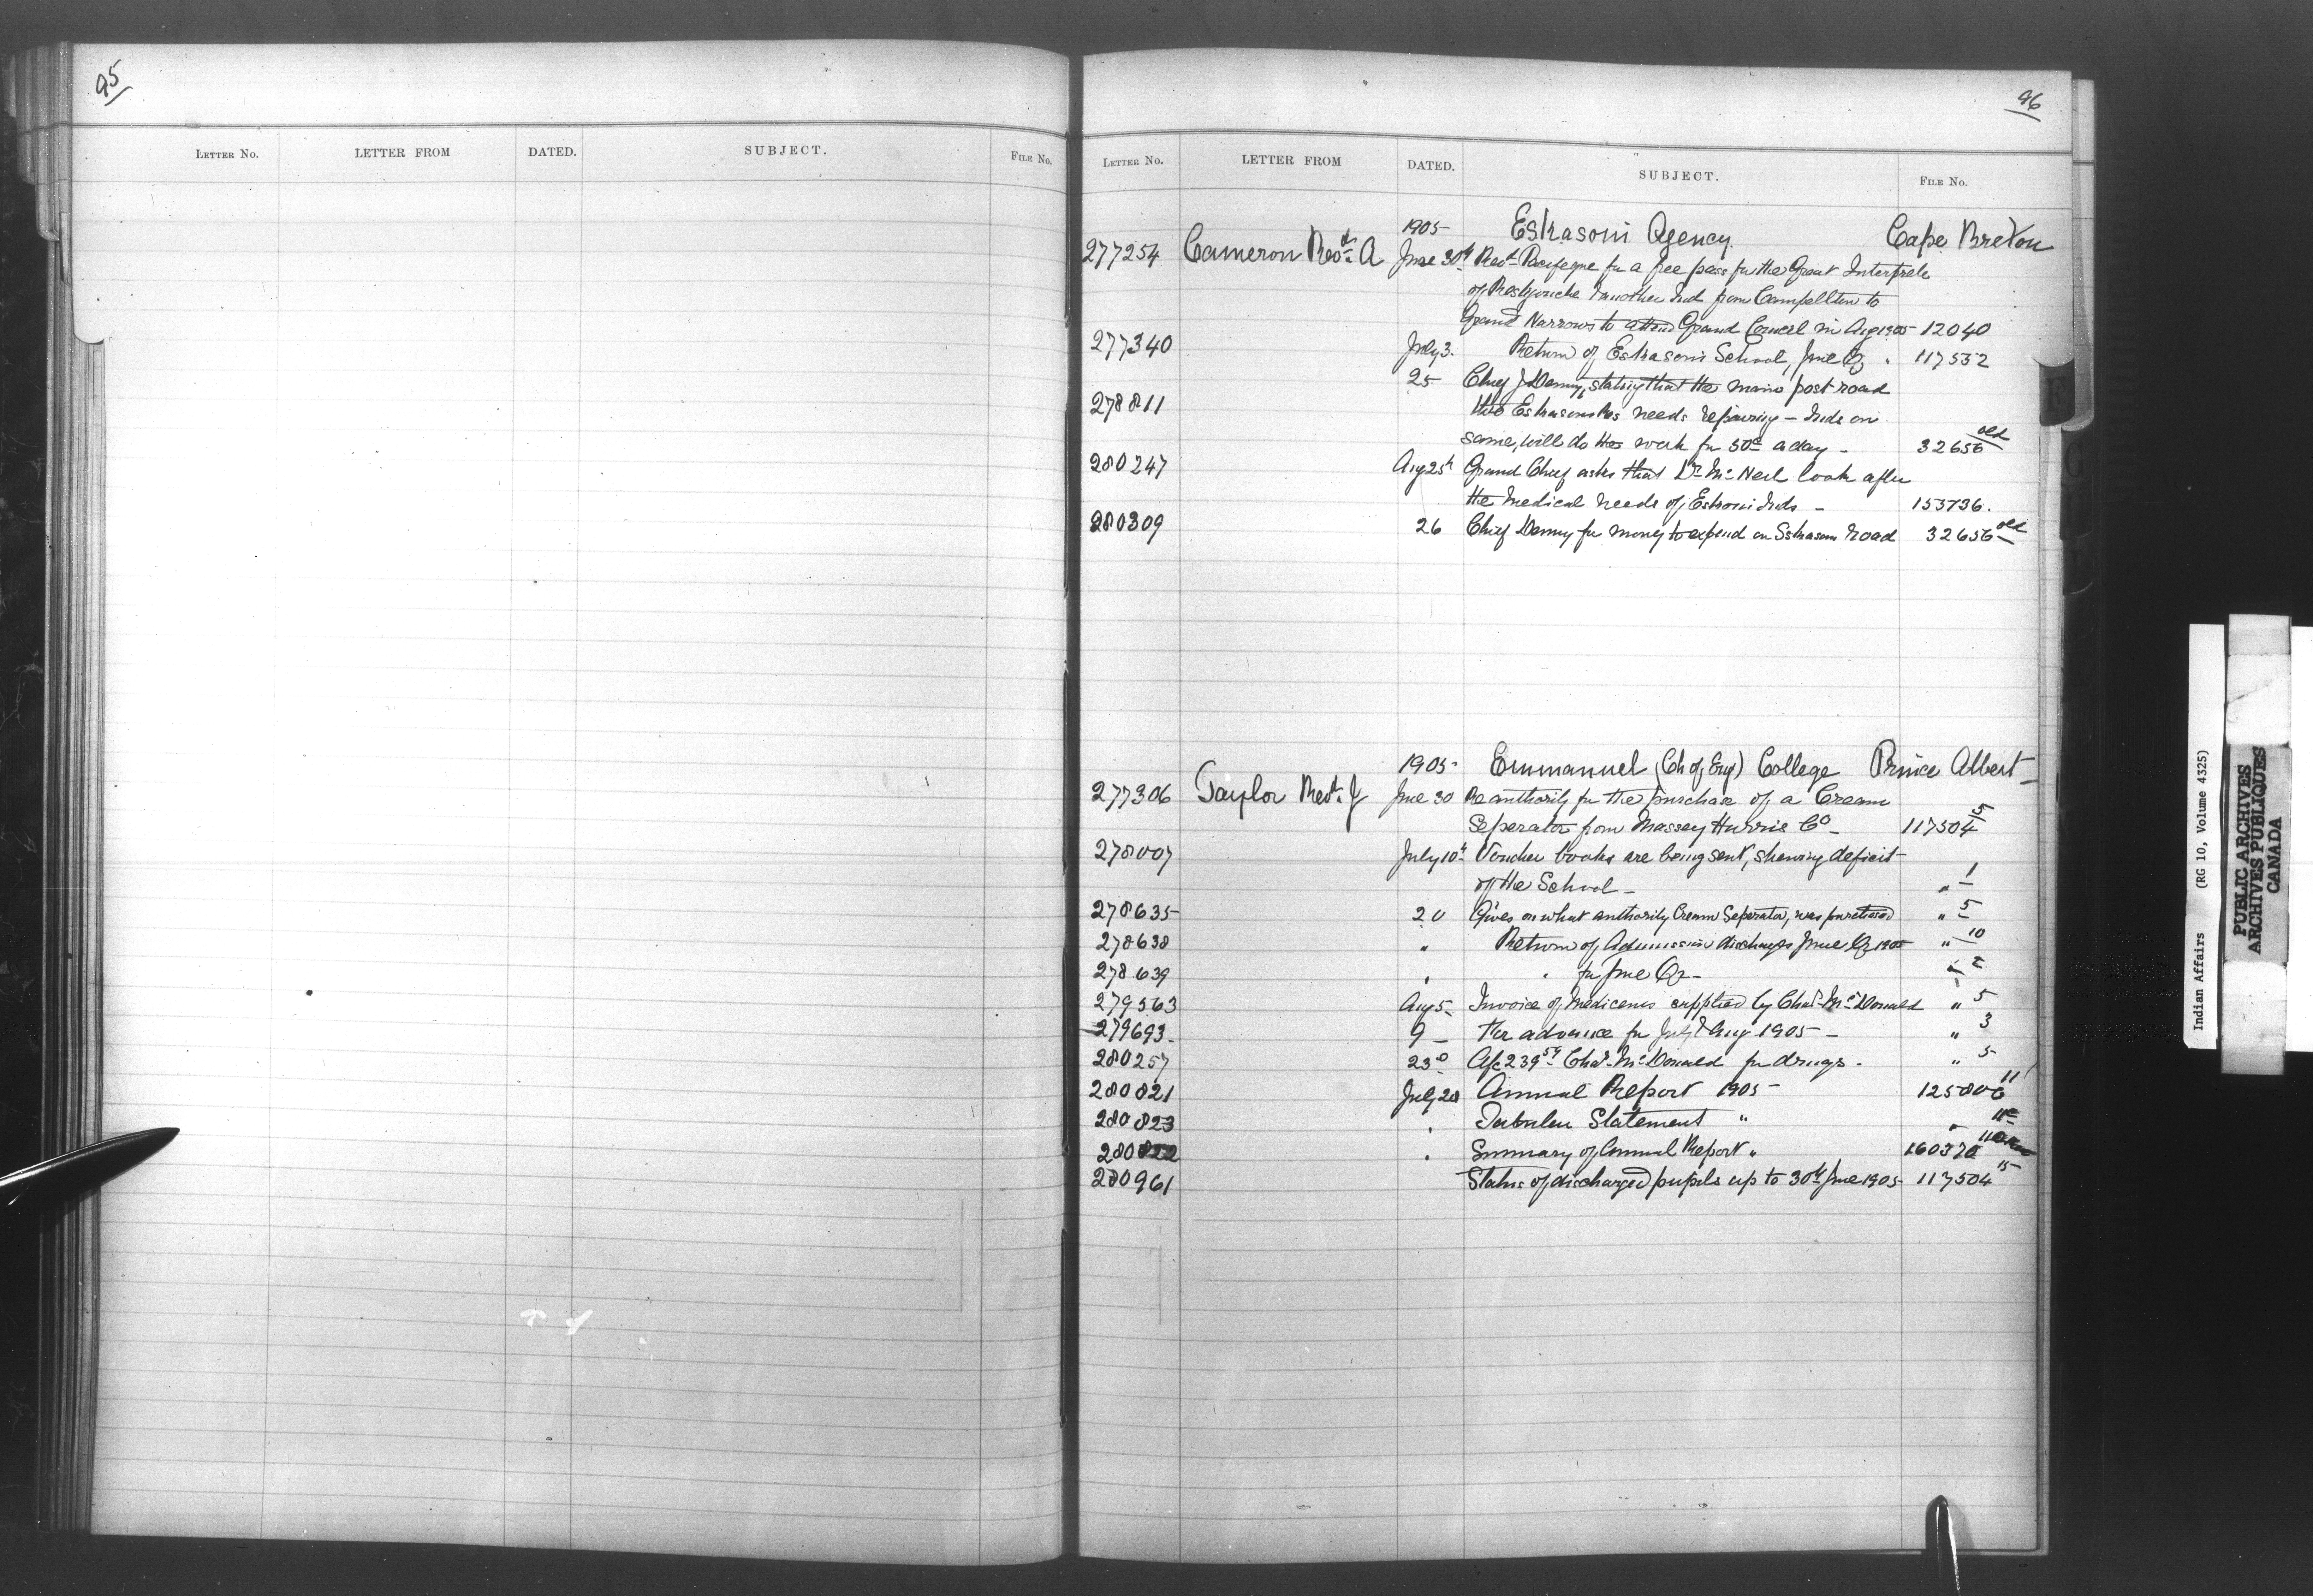 95
LETTER NO. LETTER FROM DATED. SUBJECT. FILE NO.
96
LETTER NO. LETTER FROM DATED. SUBJECT. FILE NO.
1905 Eskasoni Agency. Cape Breton
277254 Cameron Revd. A June 30th Revd. Pacifique for a free pass for the Great Interprete
of Restigouche & another Ind from Campellton to
Grand Narrows to attend Grand Council in Aug 1905 12040
277340 July 3. Return of Eskasoni School, June Qr. 117552
25 Chief J Denny, stating that the main post road
278811 thro Eskasoni Res needs repairing - Inds on
same, will do the work for 50c a day - 32656 old
280247 Aug 25th Grand Chief asks that Dr. McNeil look after
the medical needs of Eskoni Inds - 153736.
280309 26 Chief Denny for money to expend on Eskasoni Road 32656 old
1905 Emmanuel (Ch of Eng) College Prince Albert
277306 Taylor Revd. J June 30 Re authority for the purchase of a Cream
Seperator from Massey Harris Co - 117504 5
278007 July 10th Voucher books are being sent, shewing deficit
of the School - " 1
278635 20 Gives on what authority Cream Seperator, was purchased " 5
278638 " Return of Admission discharges June Qr 1905 " 10
278639 " " for June Qr - " 2
279563 Aug 5 Invoice of Medicines supplied by Chas. McDonald " 5
279693 9 - For advance for July & Aug 1905 - " 3
280257 23 A/c 239 Chas. McDonald for drugs. " 5
280821 July 20 Annual Report 1905 - 125806 11
280823 " Tabular Statement " "
280822 " Summary of Annual Report " 160370
280961 Status of discharged pupils up to 30th June 1905 117504 15
Indian Affairs (RG 10, Volume 4325)
PUBLIC ARCHIVES
ARCHIVES PUBLIQUES
CANADA